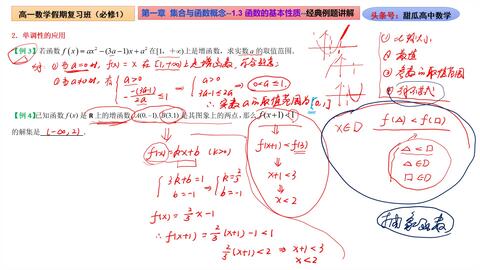 高一数学假期复习班（必修1）
第一章 集合与函数概念--1.3 函数的基本性质--经典例题讲解
头条号：甜瓜高中数学
2. 单调性的应用
【例3】若函数 f(x)=ax²-(3a-1)x+a² 在[1, +∞)上是增函数，求实数 a 的取值范围.
① 当a=0时, f(x)=x 在[1,+∞)上是增函数, 符合题意;
② 当a≠0时, 在 { a>0, -(-(3a-1))/2a ≤1 ⇒ { a>0, 3a-1≤2a ⇒ 0<a≤1.
∴ 实数a的取值范围为[0,1]
【例4】已知函数 f(x) 是 R 上的增函数, A(0,-1), B(3,1) 是其图象上的两点, 那么 f(x+1)<1
的解集是 (-∞,2).
f(x)=kx+b (k>0)
{ 3k+b=1, b=-1 ⇒ { k=2/3, b=-1
f(x)=2/3x-1
∴ f(x+1)=2/3(x+1)-1<1
2/3(x+1)<2 ⇒ x+1<3
x<2
f(x+1)<f(3)
x+1<3
x<2
② 最值
③ 参数的取值范围
x∈D
f(△)<f(□)
△<□
△∈D
□∈D
抽象函数